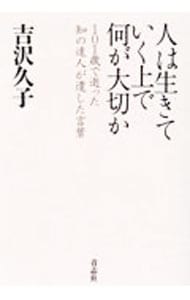 人は生きて
いく上で
何が大切か
101歳で逝った
知の達人が遺した言葉
吉沢久子
青志社